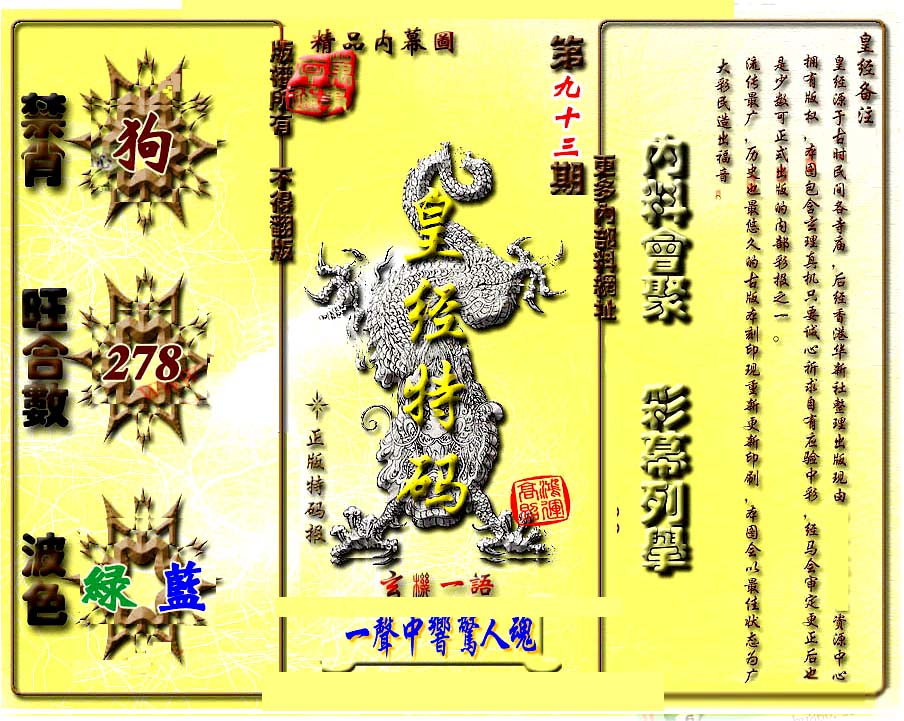 精品内幕圖
第九十三期
版權所有 不得翻版
更多內部料網址
禁肖
狗
旺合數
278
波色
綠 藍
皇经特码
正版特码报
鴻運高照
玄機一語
一聲中響驚人魂
內料會聚
彩幕列舉
皇经备注
皇经源于古时民间各寺庙,后经香港华新社整理出版现由 资源中心
拥有版权,本图包含玄理真机只要诚心祈求自有应验中彩,经马会审定更正后也
是少数可正式出版的内部彩报之一。
流传最广,历史也最悠久的古版本刻印现重新更新印刷,本图会以最佳状态为广
大彩民造出福音